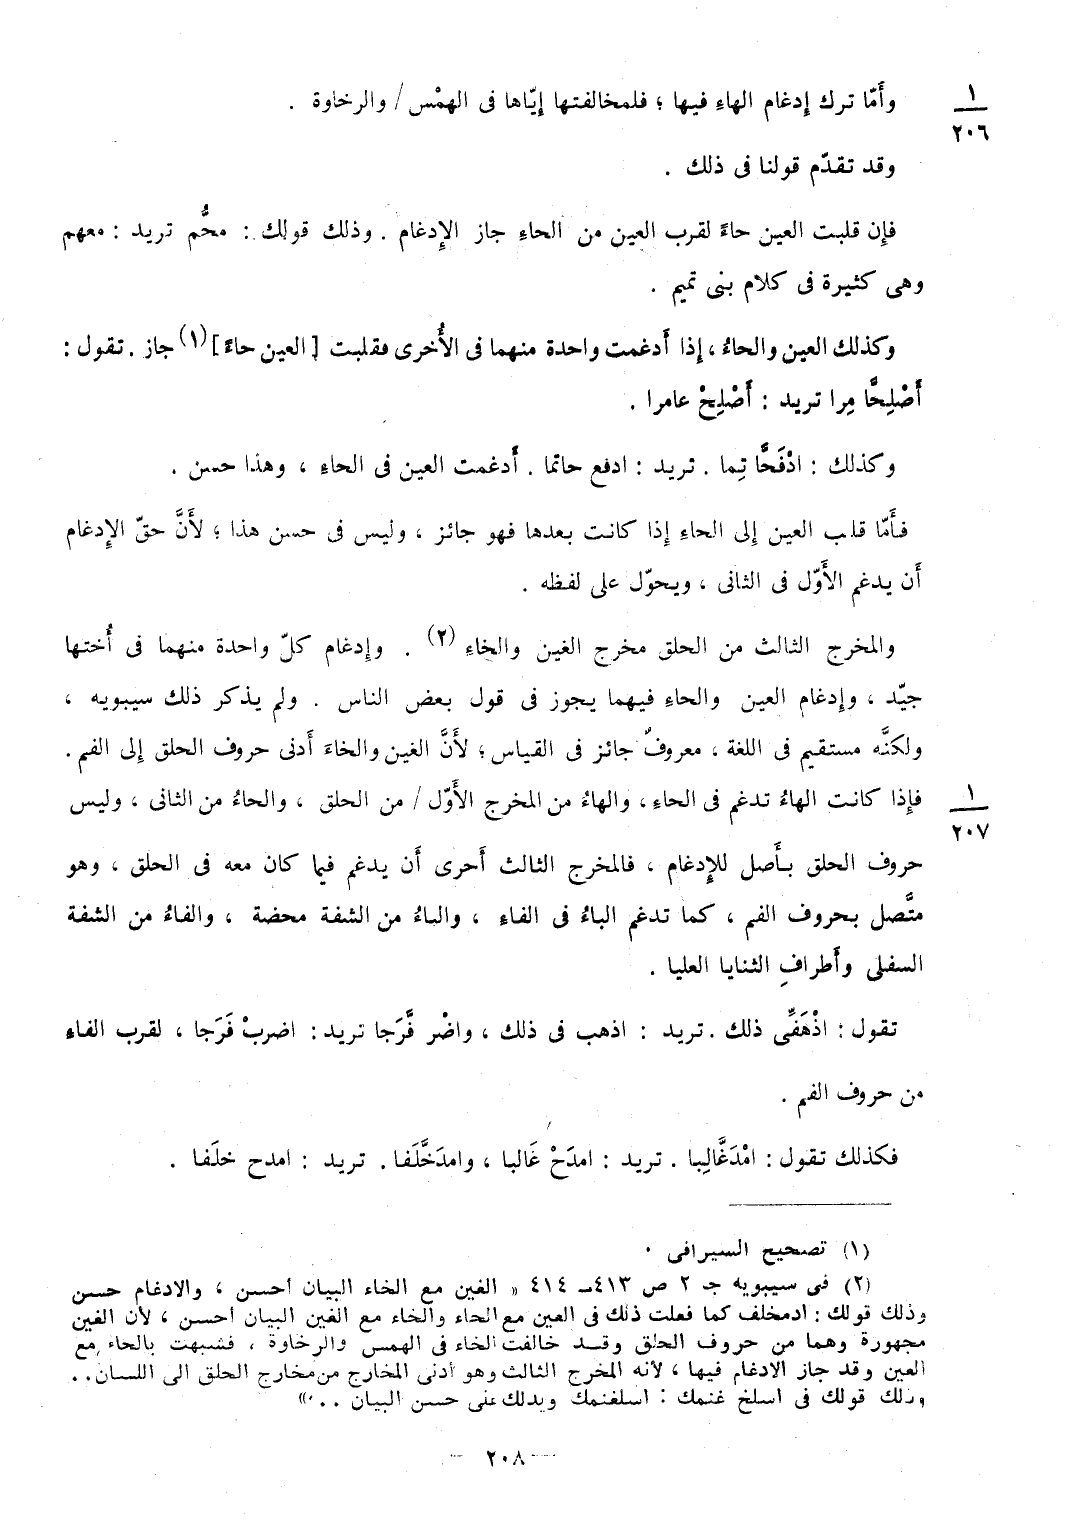 وأَمّا ترك إدغام الهاء فيها ؛ فلمخالفتها إيّاها فى الهمْس / والرخاوة .
١
٢٠٦
وقد تقدّم قولنا فى ذلك .
فإن قلبت العين حاءً لقرب العين من الحاءِ جاز الإدغام . وذلك قولك : محُّم تريد : معهم
وهى كثيرة فى كلام بنى تميم .
وكذلك العين والحاءُ ، إذا أَدغمت واحدة منهما فى الأُخرى فقلبت [ العين حاءً ] (١) جاز . تقول :
أَصْلِحَّا مِرا تريد : أَصْلِحْ عامرا .
وكذلك : ادْفَحَّا تِما . تريد : ادفع حاتما . أَدغمت العين فى الحاءِ ، وهذا حسن .
فأَمّا قلب العين إلى الحاءِ إذا كانت بعدها فهو جائز ، وليس فى حسن هذا ؛ لأَنَّ حقّ الإدغام
أَن يدغم الأَوّل فى الثانى ، ويحوّل على لفظه .
والمخرج الثالث من الحلق مخرج الغين والخاءِ (٢) . وإدغام كلّ واحدة منهما فى أُختها
جيّد ، وإدغام العين والحاءِ فيهما يجوز فى قول بعض الناس . ولم يذكر ذلك سيبويه ،
ولكنَّه مستقيم فى اللغة ، معروفٌ جائز فى القياس ؛ لأَنَّ الغين والخاءَ أَدنى حروف الحلق إلى الفم .
فإذا كانت الهاءُ تدغم فى الحاءِ ، والهاءُ من المخرج الأَوّل / من الحلق ، والحاءُ من الثانى ، وليس
١
٢٠٧
حروف الحلق بأَصل للإدغام ، فالمخرج الثالث أَحرى أَن يدغم فيما كان معه فى الحلق ، وهو
متَّصل بحروف الفم ، كما تدغم الباءُ فى الفاءِ ، والباءُ من الشفة محضة ، والفاءُ من الشفة
السفلى وأَطرافِ الثنايا العليا .
تقول : اذْهَفِّى ذلك . تريد : اذهب فى ذلك ، واضْر فَّرَجا تريد : اضربْ فَرَجا ، لقرب الفاءِ
من حروف الفم .
فكذلك تقول : امْدَغَّالِبا . تريد : امدَحْ غَالبا ، وامدَخَّلَفا . تريد : امدح خلَفا .
(١) تصحيح السيرافى .
(٢) فى سيبويه جـ ٢ ص ٤١٣ـ ٤١٤ « الغين مع الخاء البيان أحسن ، والادغام حسن
وذلك قولك : ادمخلف كما فعلت ذلك فى العين مع الحاء والخاء مع الغين البيان أحسن ، لأن الغين
مجهورة وهما من حروف الحلق وقد خالفت الخاء فى الهمس والرخاوة ، فشبهت بالحاء مع
العين وقد جاز الادغام فيها ، لأنه المخرج الثالث وهو أدنى المخارج من مخارج الحلق الى اللسان . .
وذلك قولك فى اسلخ غنمك : اسلغنمك ويدلك على حسن البيان . . . »
— ٢٠٨ —